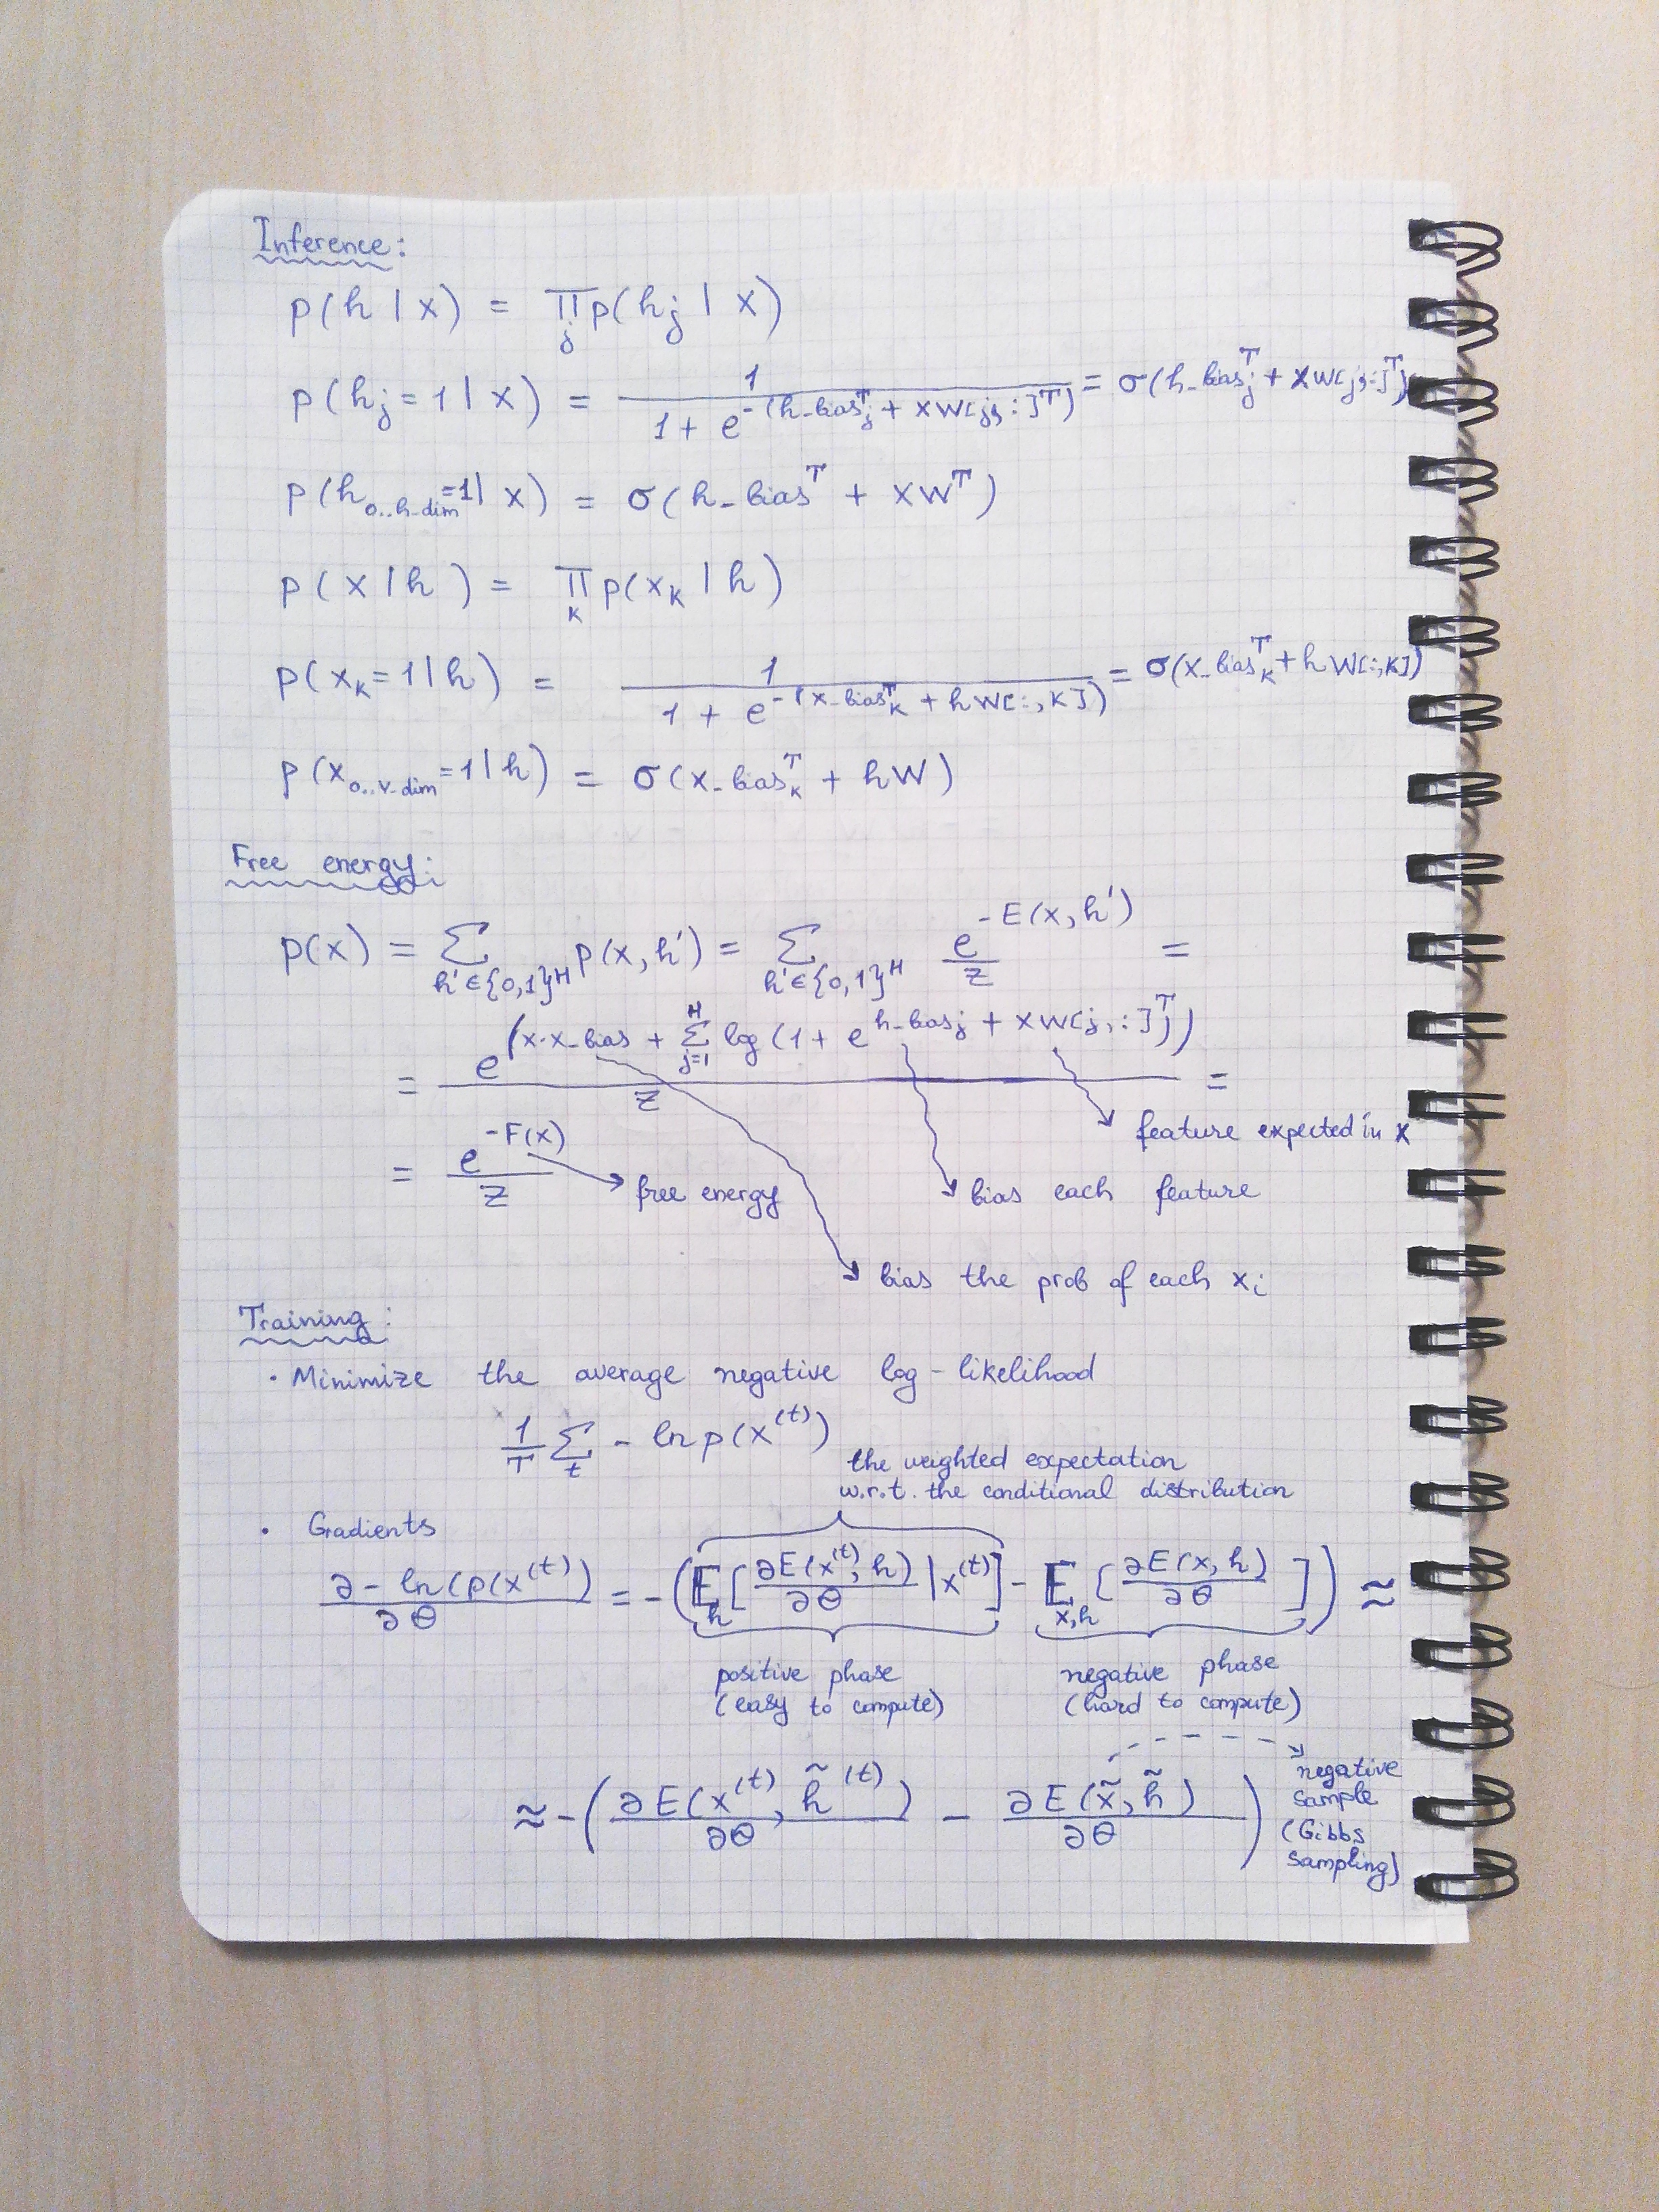 Inference:
p(h | x) = ∏_j p(h_j | x)
p(h_j = 1 | x) = 1 / (1 + e^-(h_bias_j^T + xW[j, :]^T)) = σ(h_bias_j^T + xW[j, :]^T)
p(h_{0..h-dim} = 1 | x) = σ(h_bias^T + xW^T)
p(x | h) = ∏_k p(x_k | h)
p(x_k = 1 | h) = 1 / (1 + e^-(x_bias_k^T + hW[:, k])) = σ(x_bias_k^T + hW[:, k])
p(x_{0..v-dim} = 1 | h) = σ(x_bias_k^T + hW)
Free energy:
p(x) = Σ_{h'∈{0,1}^H} p(x, h') = Σ_{h'∈{0,1}^H} e^{-E(x, h')} / Z =
= e^(x·x_bias + Σ_{j=1}^H log(1 + e^{h_bias_j + xW[j, :]^T_j})) / Z =
feature expected in x
= e^{-F(x)} / Z
free energy
bias each feature
bias the prob of each x_i
Training:
· Minimize the average negative log-likelihood
1/T Σ_t - ln p(x^(t))
the weighted expectation
w.r.t. the conditional distribution
· Gradients
∂ - ln(p(x^(t)) / ∂θ = -(E_h[∂E(x^(t), h) / ∂θ | x^(t)] - E_{x,h}[∂E(x, h) / ∂θ]) ≈
positive phase
(easy to compute)
negative phase
(hard to compute)
≈ -(∂E(x^(t), h̃^(t)) / ∂θ - ∂E(x̃, h̃) / ∂θ)
negative
sample
(Gibbs
sampling)